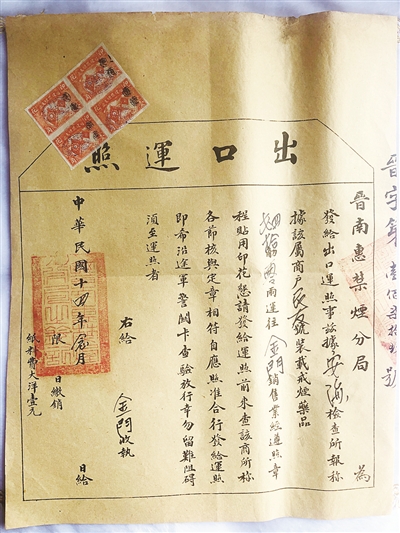 出口運照
晉南惠禁煙分局 為
發給出口運照事茲據安海檢查所報稱
據該屬商戶 號裝載戒煙藥品
兩運往金門銷售業經遵照章
程貼用印花懇請發給運照前來查該商所稱
各節核與定章相符自應照准合行發給運照
即希沿途軍警關卡查驗放行幸勿留難阻碍
須至運照者
右給 金門 收執
中華民國十四年 月 日給
限 日繳銷
紙料費大洋壹元
晉字第 號